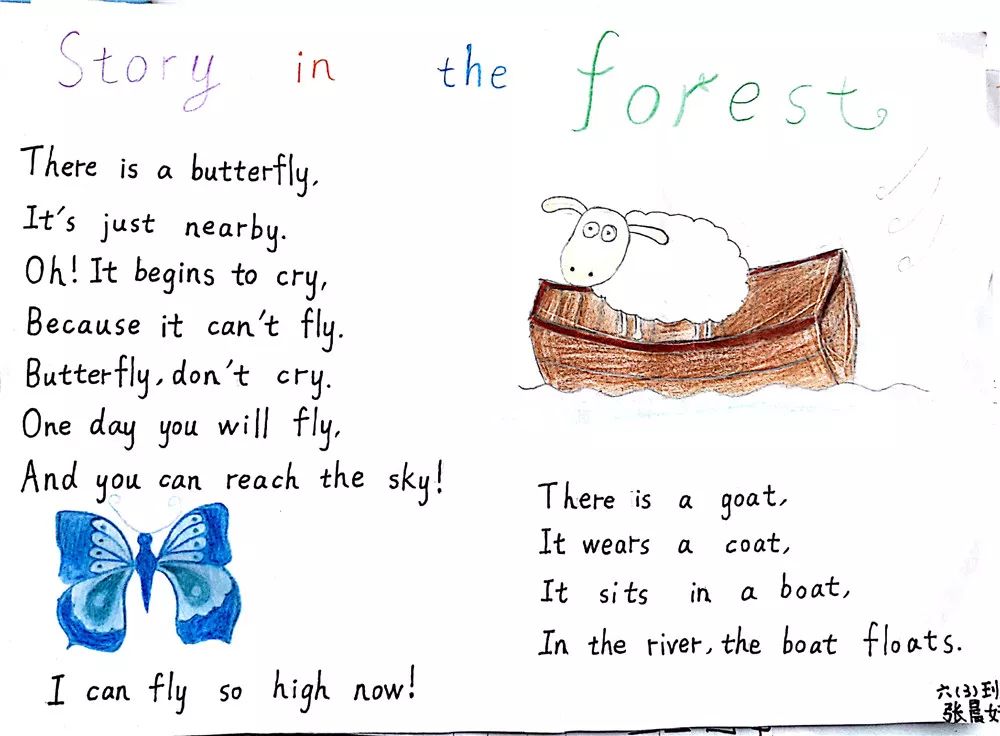 Story in the forest
There is a butterfly,
It's just nearby.
Oh! It begins to cry,
Because it can't fly.
Butterfly, don't cry.
One day you will fly,
And you can reach the sky!
I can fly so high now!
There is a goat,
It wears a coat,
It sits in a boat,
In the river, the boat floats.
六(3)班
张晨